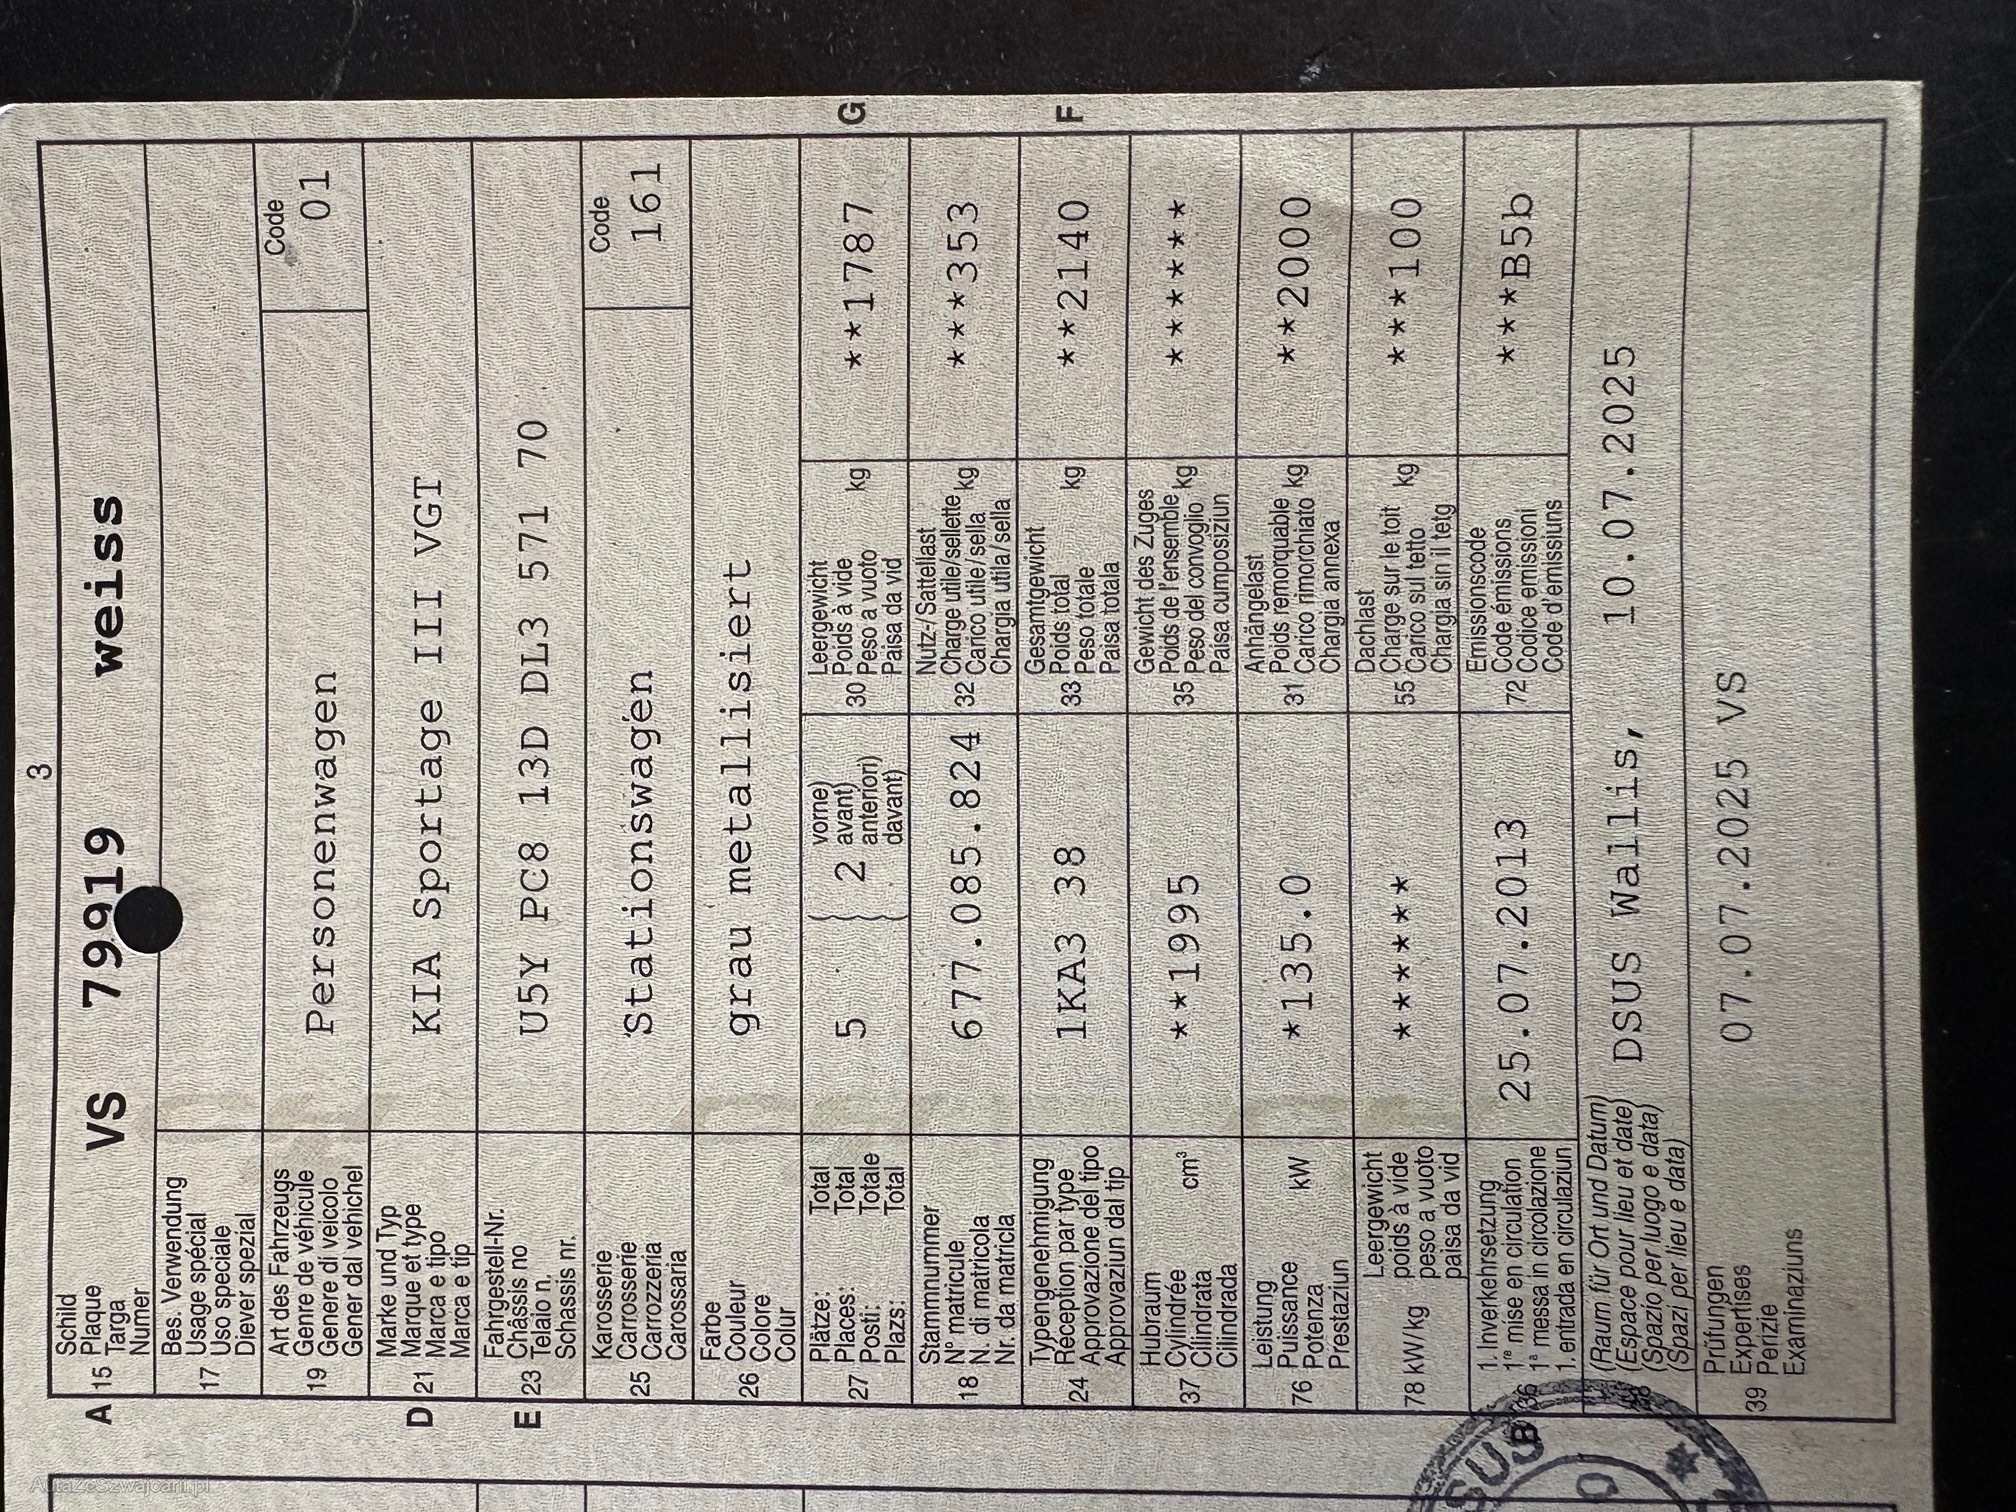 3
A 15 Schild
Plaque
Targa
Numer
VS 79919 weiss
17 Bes. Verwendung
Usage spécial
Uso speciale
Diever spezial
19 Art des Fahrzeugs
Genre de véhicule
Genere di veicolo
Gener dal vehichel
Personenwagen
Code
01
D 21 Marke und Typ
Marque et type
Marca e tipo
Marca e tip
KIA Sportage III VGT
E 23 Fahrgestell-Nr.
Châssis no
Telaio n.
Schassis nr.
U5Y PC8 13D DL3 571 70
25 Karosserie
Carrosserie
Carozzeria
Carossaria
Stationswagen
Code
161
26 Farbe
Couleur
Colore
Colur
grau metallisiert
27 Plätze: Total
Places: Total
Posti: Totale
Plazs: Total
5
2 vorne)
avant)
anteriori)
davant)
30 Leergewicht
Poids à vide
Peso a vuoto kg
Paisa da vid
**1787
G
18 Stammnummer
N° matricule
N. di matricola
Nr. da matricla
677.085.824
32 Nutz-/Sattellast
Charge utile/sellette
Carico utile/sella kg
Chargia utila/sella
***353
24 Typengenehmigung
Réception par type
Approvazione del tipo
Approvaziun dal tip
1KA3 38
33 Gesamtgewicht
Poids total
Peso totale kg
Paisa totala
**2140
F
37 Hubraum
Cylindrée cm³
Cilindrata
Cilindrada
**1995
35 Gewicht des Zuges
Poids de l'ensemble
Peso del convoglio kg
Paisa cumposiziun
******
76 Leistung
Puissance kW
Potenza
Prestaziun
*135.0
31 Anhängelast
Poids remorquable
Carico rimorchiato kg
Chargia annexa
**2000
78 kW/kg Leergewicht
poids à vide
peso a vuoto
paisa da vid
******
55 Dachlast
Charge sur le toit
Carico sul tetto kg
Chargia sin il tetg
***100
B 36 1. Inverkehrsetzung
1re mise en circulation
1a messa in circolazione
1. entrada en circulaziun
25.07.2013
72 Emissionscode
Code émissions
Codice emissioni
Code d'emissiuns
***B5b
(Raum für Ort und Datum)
(Espace pour lieu et date)
(Spazio per luogo e data)
(Spazi per lieu e data)
DSUS Wallis, 10.07.2025
39 Prüfungen
Expertises
Perizie
Examinaziuns
07.07.2025 VS
AutazeSzwajcarii.pl